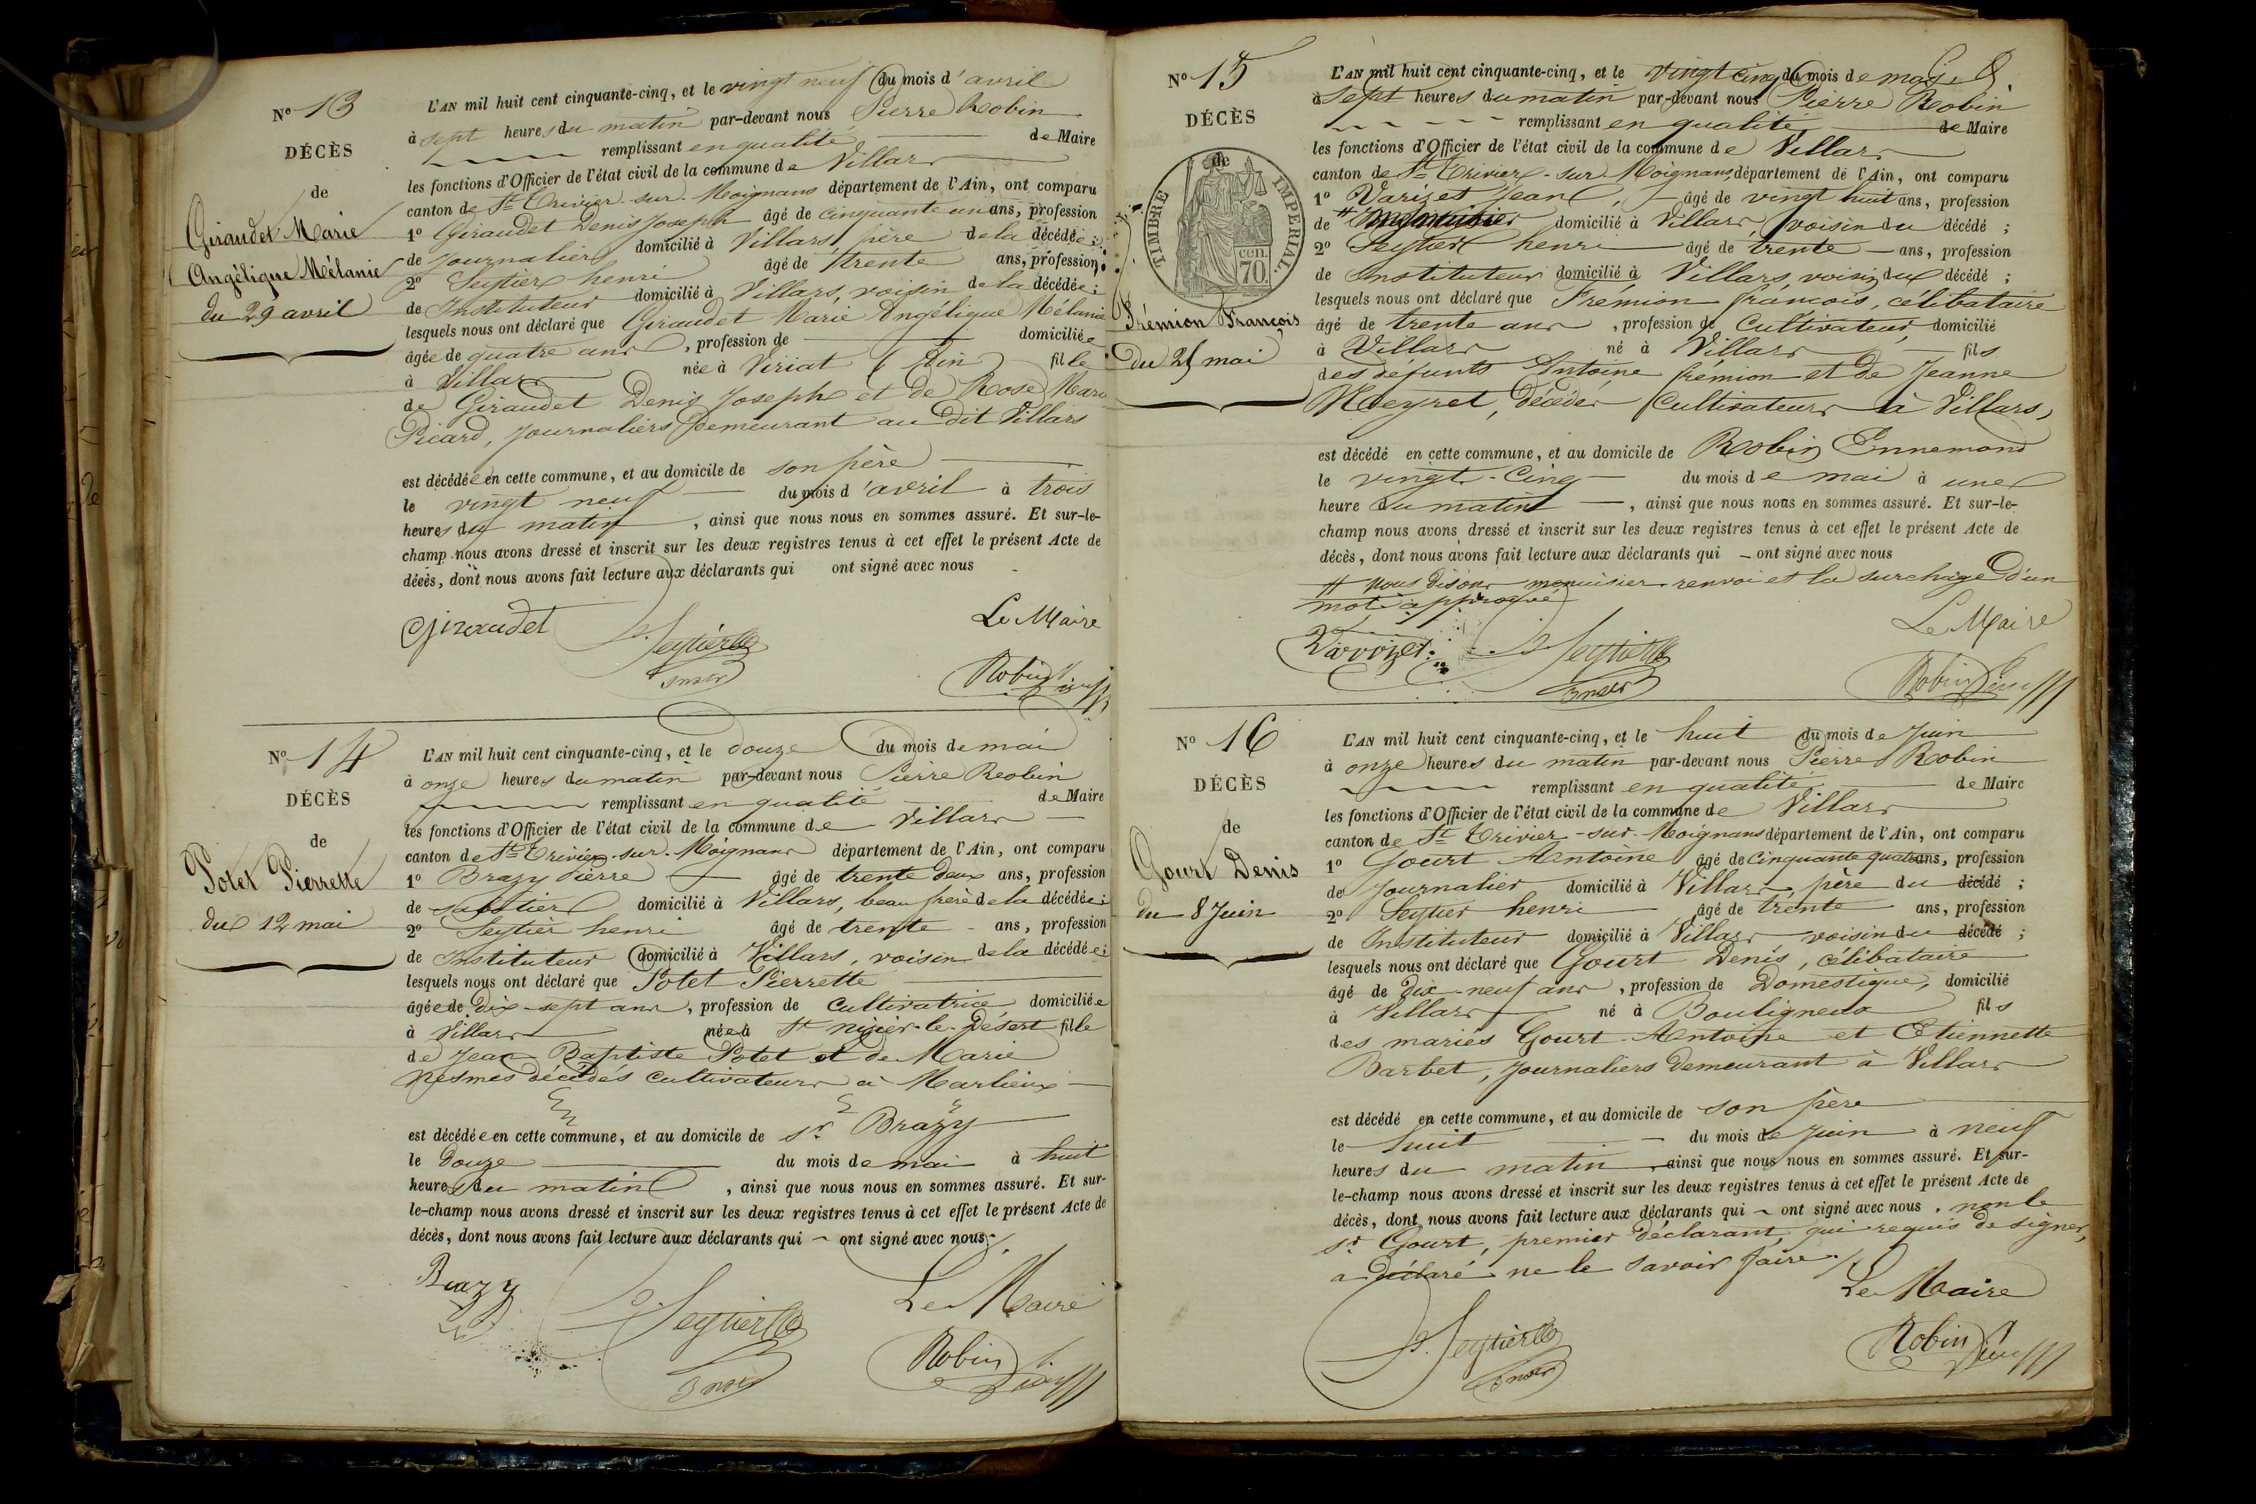 N° 13
DÉCÈS
de
Giraudet Marie
Angélique Mélanie
du 29 avril
L'AN mil huit cent cinquante-cinq, et le vingt neuf du mois d'avril
à sept heures du matin par-devant nous Pierre Robin
remplissant en qualité de Maire
les fonctions d'Officier de l'état civil de la commune de Villars
canton de St Trivier-sur-Moignans département de l'Ain, ont comparu
1° Giraudet Denis Joseph âgé de cinquante un ans, profession
de journalier domicilié à Villars, père de la décédée;
2° Seytier henri âgé de trente ans, profession
de Instituteur domicilié à Villars, voisin de la décédée;
lesquels nous ont déclaré que Giraudet Marie Angélique Mélanie
âgée de quatre ans, profession de domiciliée
à Villars née à Viriat (Ain) fille
de Giraudet Denis Joseph et de Rose Marie
Picard, journaliers demeurant au dit Villars
est décédée en cette commune, et au domicile de son père
le vingt neuf du mois d'avril à trois
heures du matin, ainsi que nous nous en sommes assuré. Et sur-le-
champ nous avons dressé et inscrit sur les deux registres tenus à cet effet le présent Acte de
décès, dont nous avons fait lecture aux déclarants qui ont signé avec nous
Le Maire
Giraudet Seytier
Robin
N° 14
DÉCÈS
de
Potet Pierrette
du 12 mai
L'AN mil huit cent cinquante-cinq, et le douze du mois de mai
à onze heures du matin par-devant nous Pierre Robin
remplissant en qualité de Maire
les fonctions d'Officier de l'état civil de la commune de Villars
canton de St Trivier-sur-Moignans département de l'Ain, ont comparu
1° Brazy Pierre âgé de trente deux ans, profession
de sabotier domicilié à Villars, beau frère de la décédée;
2° Seytier henri âgé de trente ans, profession
de Instituteur domicilié à Villars, voisin de la décédée;
lesquels nous ont déclaré que Potet Pierrette
âgée de dix-sept ans, profession de cultivatrice domiciliée
à Villars née à St nizier-le-Désert fille
de Jean Baptiste Potet et de Marie
Nesmes décédés cultivateurs à Marlieux
est décédée en cette commune, et au domicile de sr Brazy
le douze du mois de mai à huit
heures du matin, ainsi que nous nous en sommes assuré. Et sur-
le-champ nous avons dressé et inscrit sur les deux registres tenus à cet effet le présent Acte de
décès, dont nous avons fait lecture aux déclarants qui ont signé avec nous.
Brazy Seytier Le Maire
Robin
N° 15
DÉCÈS
de
TIMBRE IMPERIAL.
70 cen.
Frémion François
du 25 mai
L'AN mil huit cent cinquante-cinq, et le vingt cinq du mois de mai
à sept heures du matin par-devant nous Pierre Robin
remplissant en qualité de Maire
les fonctions d'Officier de l'état civil de la commune de Villars
canton de St Trivier-sur-Moignans, département de l'Ain, ont comparu
1° Varizet Jean, âgé de vingt huit ans, profession
de # domicilié à Villars, voisin du décédé;
2° Seytier henri âgé de trente ans, profession
de Instituteur domicilié à Villars, voisin du décédé;
lesquels nous ont déclaré que Frémion françois, célibataire
âgé de trente ans, profession de Cultivateur, domicilié
à Villars né à Villars fils
des défunts Antoine frémion et de Jeanne
Meyret, décédés Cultivateurs à Villars,
est décédé en cette commune, et au domicile de Robin Ennemond
le vingt-Cinq du mois de mai à une
heure du matin, ainsi que nous nous en sommes assuré. Et sur-le-
champ nous avons dressé et inscrit sur les deux registres tenus à cet effet le présent Acte de
décès, dont nous avons fait lecture aux déclarants qui ont signé avec nous
# nous disons menuisier renvoi et la surchage d'un
mot approuvé
Le Maire
Seytier
Robin
N° 16
DÉCÈS
de
Gourt Denis
du 8 Juin
L'AN mil huit cent cinquante-cinq, et le huit du mois de Juin
à onze heures du matin par-devant nous Pierre Robin
remplissant en qualité de Maire
les fonctions d'Officier de l'état civil de la commune de Villars
canton de St Trivier-sur-Moignans département de l'Ain, ont comparu
1° Gourt Antoine âgé de cinquante quatre ans, profession
de Journalier domicilié à Villars, père du décédé;
2° Seytier henri âgé de trente ans, profession
de Instituteur domicilié à Villars voisin du décédé;
lesquels nous ont déclaré que Gourt Denis, célibataire
âgé de dix-neuf ans, profession de Domestique, domicilié
à Villars né à Bouligneux fils
des mariés Gourt Antoine et Etiennette
Barbet, journaliers demeurant à Villars
est décédé en cette commune, et au domicile de son père
le huit du mois de Juin à neuf
heures du matin ainsi que nous nous en sommes assuré. Et sur-
le-champ nous avons dressé et inscrit sur les deux registres tenus à cet effet le présent Acte de
décès, dont nous avons fait lecture aux déclarants qui ont signé avec nous. non le
sr Gourt, premier déclarant, qui requis de signer,
a déclaré ne le savoir faire.
Le Maire
Seytier Robin